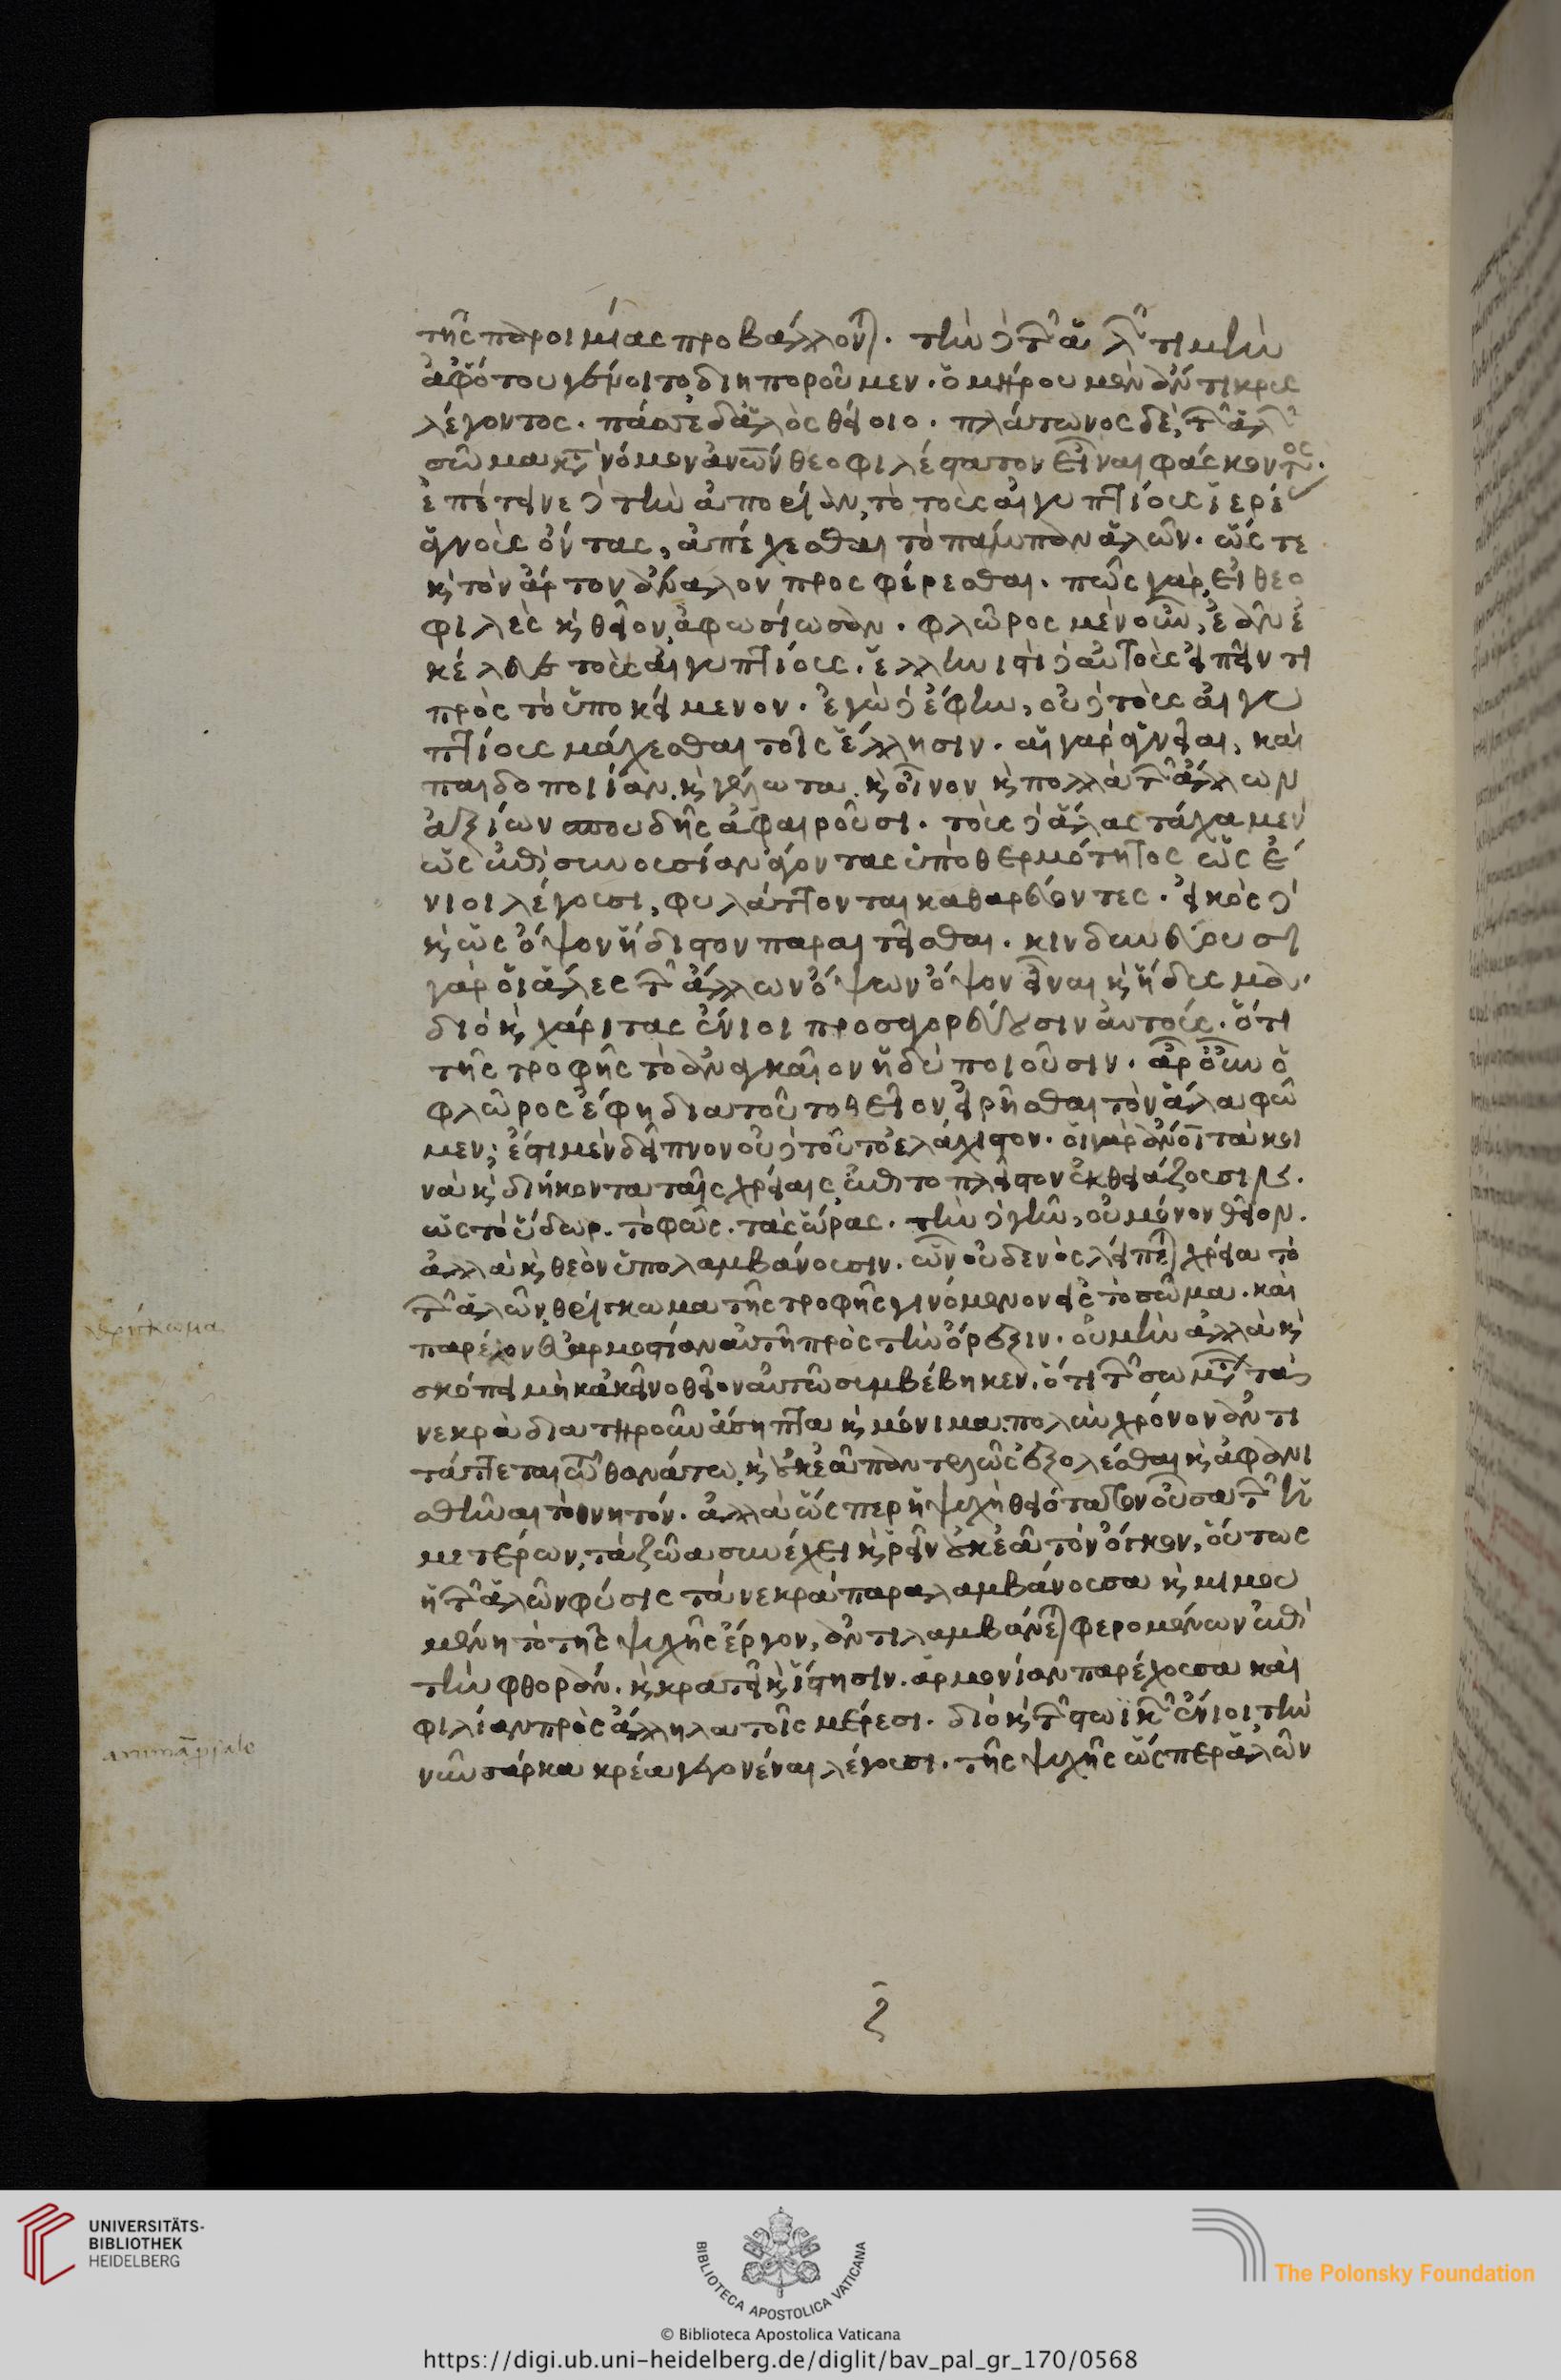 τῆς παροιμίας προβάλλον). τὴν δὲ τῶν ἁλῶν τιμὴν
ἀφ' ὅτου γένοιτο διηποροῦμεν. ὁμήρου μὲν ἄντικρυς
λέγοντος. πάσσε δ' ἁλὸς θείοιο. πλάτωνος δὲ, τῶν ἁλῶν
σῶμα κατὰ νόμον ἀνων θεοφιλέστατον εἶναι φάσκοντος.
ἐπέτεινε δὲ τὴν ἀπορίαν, τὸ τοὺς αἰγυπτίους ἱερέας
ἁγνοὺς ὄντας, ἀπέχεσθαι τὸ πάμπαν ἁλῶν. ὥστε
κ τὸν ἄρτον ἄναλον προσφέρεσθαι. πῶς γὰρ, εἰ θεο
φιλὲς κ θεῖον, ἀφωσίωσαν. φλῶρος μὲν οὖν, ἐᾶν ἐ
κέλευε τοὺς αἰγυπτίους. ἑλληνιστὶ δὲ αὐτοὺς εἰπεῖν τι
πρὸς τὸ ὑποκείμενον. ἐγὼ δὲ ἔφην, οὐδὲ τοὺς αἰγυ
πτίους μάχεσθαι τοῖς ἕλλησιν. αἱ γὰρ ἁγνεῖαι, καὶ
παιδοποιίαν, κ γέλωτα, κ οἶνον κ πολλὰ τῶν ἄλλων
ἀξίων σπουδῆς ἀφαιροῦσι. τοὺς δὲ ἅλας τάχα μὲν
ὡς ἐπὶ συνουσίαν ἄγοντας ὑπὸ θερμότητος ὡς ἔ
νιοι λέγουσι, φυλάττονται καθαρεύοντες. εἰκὸς δὲ
κ ὡς ὄψον ἥδιστον παραιτεῖσθαι. κινδυνεύουσι
γὰρ οἱ ἅλες τῶν ἄλλων ὄψων ὄψον εἶναι κ ἥδυσμα.
διὸ κ χάριτας ἔνιοι προσαγορεύουσιν αὐτούς. ὅτι
τῆς τροφῆς τὸ ἀναγκαῖον ἡδὺ ποιοῦσιν. ἆρ' οὖν ὁ
φλῶρος ἔφη διὰ τοῦτο θεῖον εἰρῆσθαι τὸν ἅλα φῶ
μεν; ἔστι μὲν δεῖπνον οὐδὲ τοῦτο ἐλάχιστον. οἱ γὰρ ἄνοι τὰ κοι
νὰ κ διήκοντα ταῖς χρείαις ἐπὶ τὸ πλεῖστον ἐκθειάζουσιν.
ὡς τὸ ὕδωρ. τὸ φῶς. τὰς ὥρας. τὴν δὲ γῆν, οὐ μόνον θεῖον.
ἀλλὰ κ θεὸν ὑπολαμβάνουσιν. ὧν οὐδενὸς λείπε) χρεία τὸ
τῶν ἁλῶν, θρίγκωμα τῆς τροφῆς γινόμενον εἰς τὸ σῶμα. καὶ
παρέχον εὐαρμοστίαν αὐτῆ πρὸς τὴν ὄρεξιν. οὐ μὴν ἀλλὰ κ
σκόπει μὴ κἀκεῖνο θεῖον αὐτῶ συμβέβηκεν, ὅτι τῶν σωμάτων τὰ
νεκρὰ διατηροῦν ἄσηπτα κ μόνιμα πολὺν χρόνον ἀντι
τάττεται τῶ θανάτω, κ οὐκ ἐᾶ παντελῶς ἐξολέσθαι κ ἀφανι
σθῆναι τὸ θνητόν. ἀλλὰ ὥσπερ ἡ ψυχὴ θειότατον οὖσα τῶν ἡ
μετέρων, τὰ ζῶα συνέχει κ ῥεῖν οὐκ ἐᾶ τὸν ὄγκον, οὕτως
ἡ τῶν ἁλῶν φύσις τὰ νεκρὰ παραλαμβάνουσα κ μιμου
μένη τὸ τῆς ψυχῆς ἔργον, ἀντιλαμβάνε) φερομένων ἐπὶ
τὴν φθοράν. κ κρατεῖ κ ἵστησιν. ἁρμονίαν παρέχουσα καὶ
φιλίαν πρὸς ἄλληλα τοῖς μέρεσι. διὸ κ τῶν στωϊκῶν ἔνιοι τὴν
νῦν σάρκα κρέα γεγονέναι λέγουσι. τῆς ψυχῆς ὥσπερ ἁλῶν
θρίγκωμα
anima pro sale
ζ
UNIVERSITÄTS-
BIBLIOTHEK
HEIDELBERG
BIBLIOTECA APOSTOLICA VATICANA
The Polonsky Foundation
© Biblioteca Apostolica Vaticana
https://digi.ub.uni-heidelberg.de/diglit/bav_pal_gr_170/0568